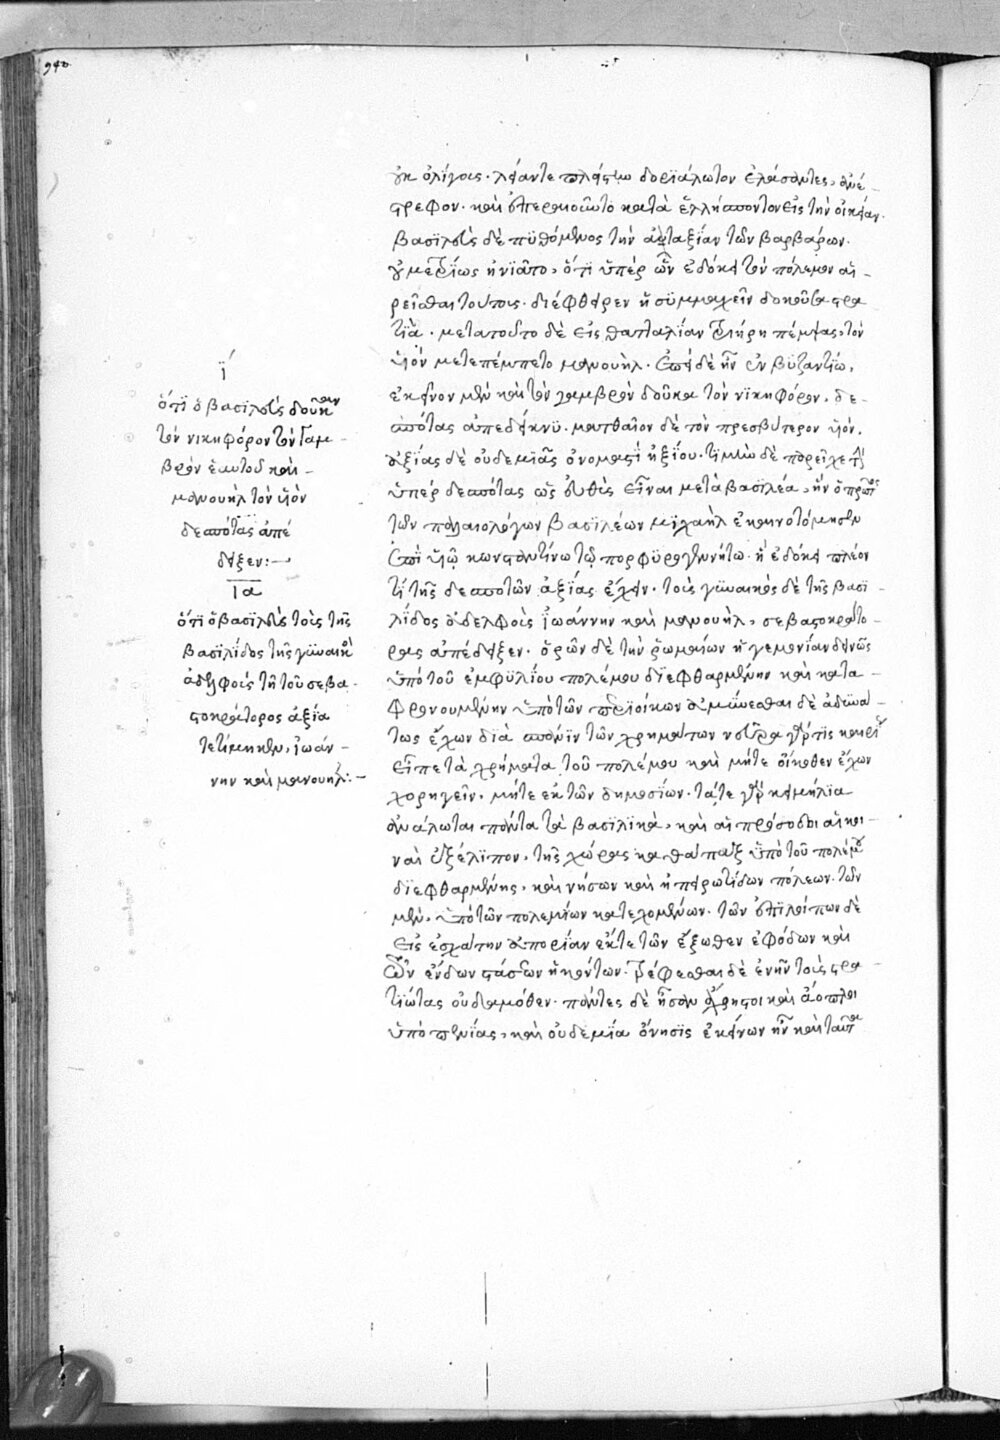 940
οὐκ ὀλίγοις. λείαν τε πλείστην δοριάλωτον ἐλάσαντες, ἀνέ-
στρεφον. καὶ ἐπεραιοῦντο κατὰ ἑλλήσποντον εἰς τὴν οἰκείαν.
βασιλεὺς δὲ πυθόμενος τὴν ἀταξίαν τῶν βαρβάρων.
οὐ μετρίως ἠνιᾶτο, ὅτι ὑπὲρ ὧν ἐδόκει τὸν πόλεμον αἱ-
ρεῖσθαι τούτοις. διέφθειρεν ἡ συμμαχεῖν δοκοῦσα στρα
τιά. μετὰ τοῦτο δὲ εἰς θατταλίαν τριήρη πέμψας, τὸν
υἱὸν μετεπέμπετο μανουήλ. ἐπεὶ δὲ ἦν ἐν βυζαντίω,
ἐκεῖνον μὲν καὶ τὸν γαμβρὸν δοῦκα τὸν νικηφόρον, δε-
σπότας ἀπεδείκνυ. ματθαῖον δὲ τὸν πρεσβύτερον υἱόν,
ἀξίας δὲ οὐδεμιᾶς ὀνομαστὶ ἠξίου. τιμὴν δὲ παρεῖχε τὴν
ὑπὲρ δεσπότας ὡς εὐθὺς εἶναι μετὰ βασιλέα, ἣν ὁ πρῶτος
τῶν παλαιολόγων βασιλέων μιχαὴλ ἐκαινοτόμησεν
ἐπὶ υἱῷ κωνσταντίνω τῷ πορφυρογεννήτω. ἣ ἐδόκει πλέον
τι τῆς δεσποτῶν ἀξίας ἔχειν. τοὺς γυναικὸς δὲ τῆς βασι-
λίδος ἀδελφοὺς ἰωάννην καὶ μανουὴλ, σεβαστοκράτο-
ρας ἀπέδειξεν. ὁρῶν δὲ τὴν ῥωμαίων ἡγεμονίαν δεινῶς
ὑπὸ τοῦ ἐμφυλίου πολέμου διεφθαρμένην καὶ κατα-
φρονουμένην ὑπὸ τῶν περιοίκων ἀμύνεσθαι δὲ ἀδυνά-
τως ἔχων διὰ σπάνιν τῶν χρημάτων
εἴπετὰ χρήματα τοῦ πολέμου καὶ μήτε οἴκοθεν ἔχων
χορηγεῖν, μήτε ἐκ τῶν δημοσίων. τά τε γὰρ κειμήλια
ἀνάλωται πάντα τὰ βασιλικὰ, καὶ αἱ πρόσοδοι αἱ κοι-
ναὶ ἐξέλιπον, τῆς χώρας καθάπαξ ὑπὸ τοῦ πολέμου
διεφθαρμένης, καὶ νήσων καὶ ἠπειρωτίδων πόλεων. τῶν
μὲν, ὑπὸ τῶν πολεμίων κατεχομένων. τῶν ἐπιλοίπων δὲ
εἰς ἐσχάτην ἀπορίαν ἔκ τε τῶν ἔξωθεν ἐφόδων καὶ
τῶν ἔνδων στάσεων ἡκόντων. τρέφεσθαι δὲ ἐνῆν τοὺς στρα-
τιώτας οὐδαμόθεν. πάντες δὲ ἦσαν ἄχρηστοι καὶ ἄοπλοι
ὑπὸ πενίας, καὶ οὐδεμία ὄνησις ἐκείνων ἦν καὶ ταῦτα
ϊ
ὅτι ὁ βασιλεὺς δοῦκαν
τὸν νικηφόρον τὸν γαμ-
βρὸν ἑαυτοῦ καὶ
μανουὴλ τὸν υἱὸν
δεσπότας ἀπέ
δειξεν:—
ια
ὅτι ὁ βασιλεὺς τοὺς τῆς
βασιλίδος τῆς γυναικὸς
ἀδελφοὺς τῆ τοῦ σεβα-
στοκράτορος ἀξία
τετίμηκεν, ἰωάν-
νην καὶ μανουήλ:—